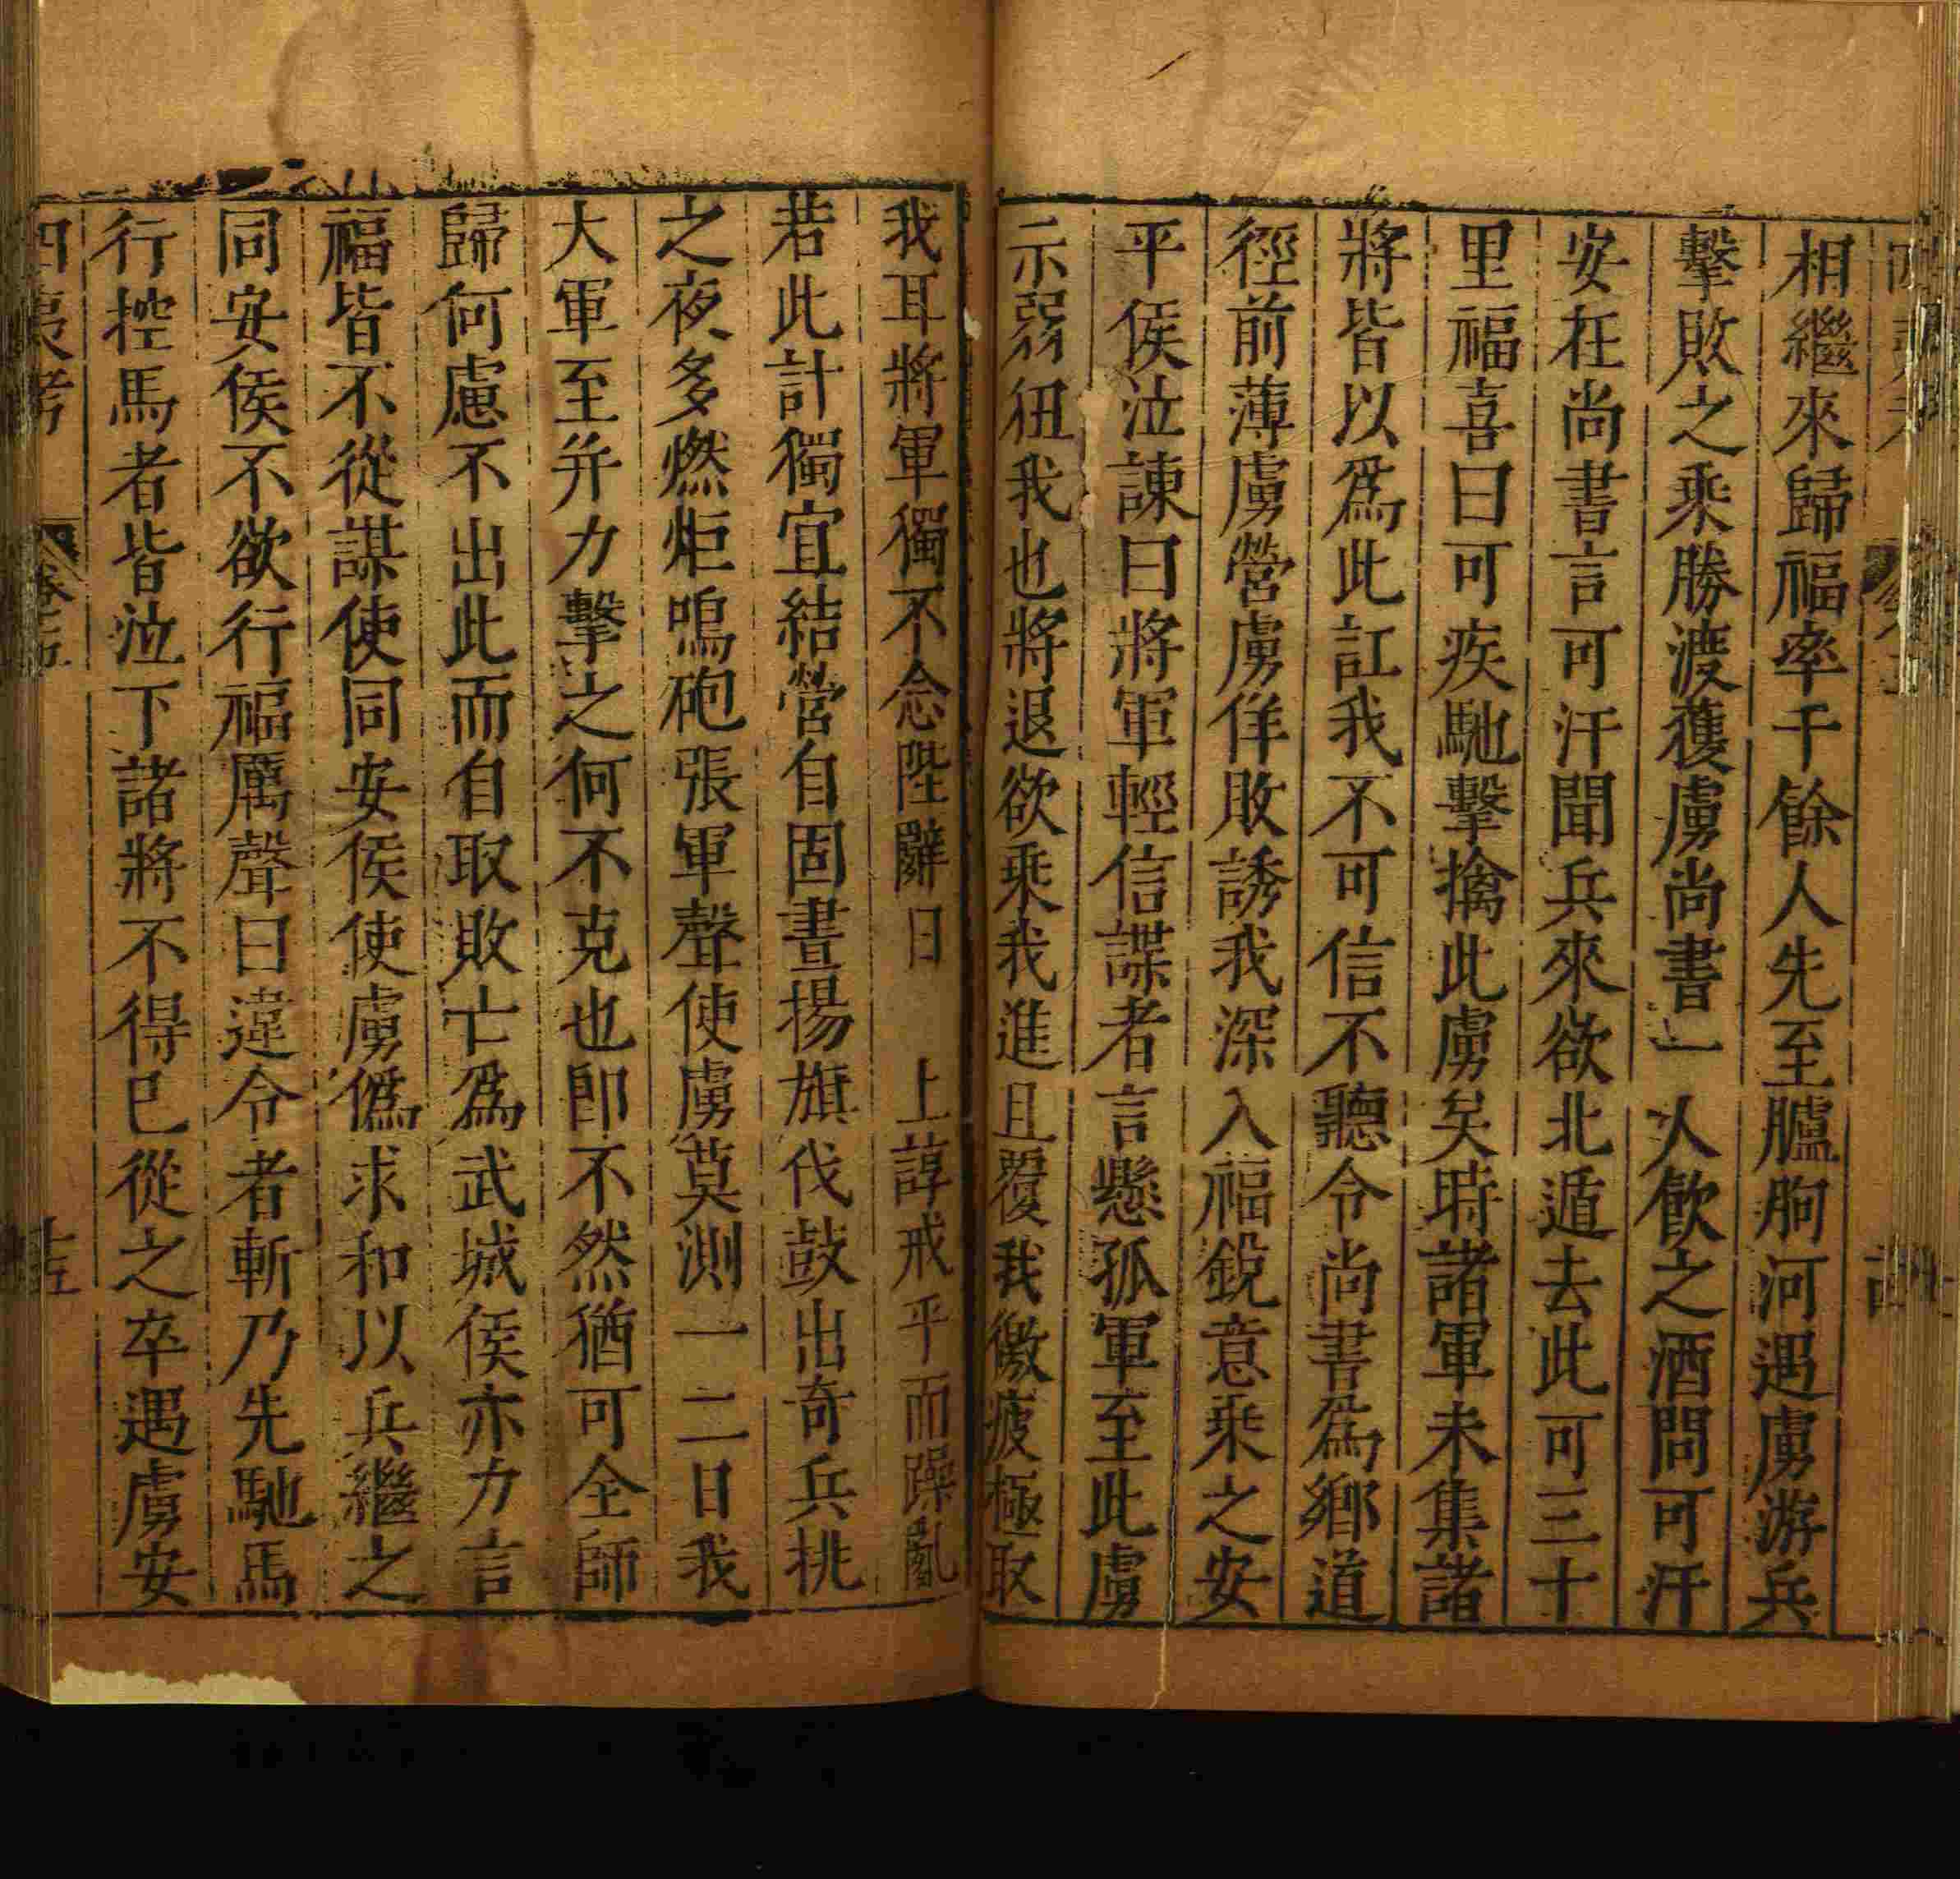 相繼來歸福率千餘人先至臚朐河遇虜游兵
擊敗之乘勝渡獲虜尚書一人飲之酒問可汗
安在尚書言可汗聞兵來欲北遁去此可三十
里福喜曰可疾馳擊擒此虜矣時諸軍未集諸
將皆以爲此訌我不可信不聽令尚書爲鄉道
徑前薄虜營虜佯敗誘我深入福銳意乘之安
平侯泣諫曰將軍輕信諜者言懸孤軍至此虜
示弱狃我也將退欲乘我進且覆我徼疲極取
我耳將軍獨不念陛辭日　上諄戒乎而躁亂
若此計獨宜結營自固晝揚旗伐鼓出奇兵挑
之夜多燃炬鳴砲張軍聲使虜莫測一二日我
大軍至并力擊之何不克也卽不然猶可全師
歸何慮不出此而自取敗亡爲武城侯亦力言
福皆不從謀使同安侯使虜僞求和以兵繼之
同安侯不欲行福厲聲曰違令者斬乃先馳馬
行控馬者皆泣下諸將不得已從之卒遇虜安
四夷考